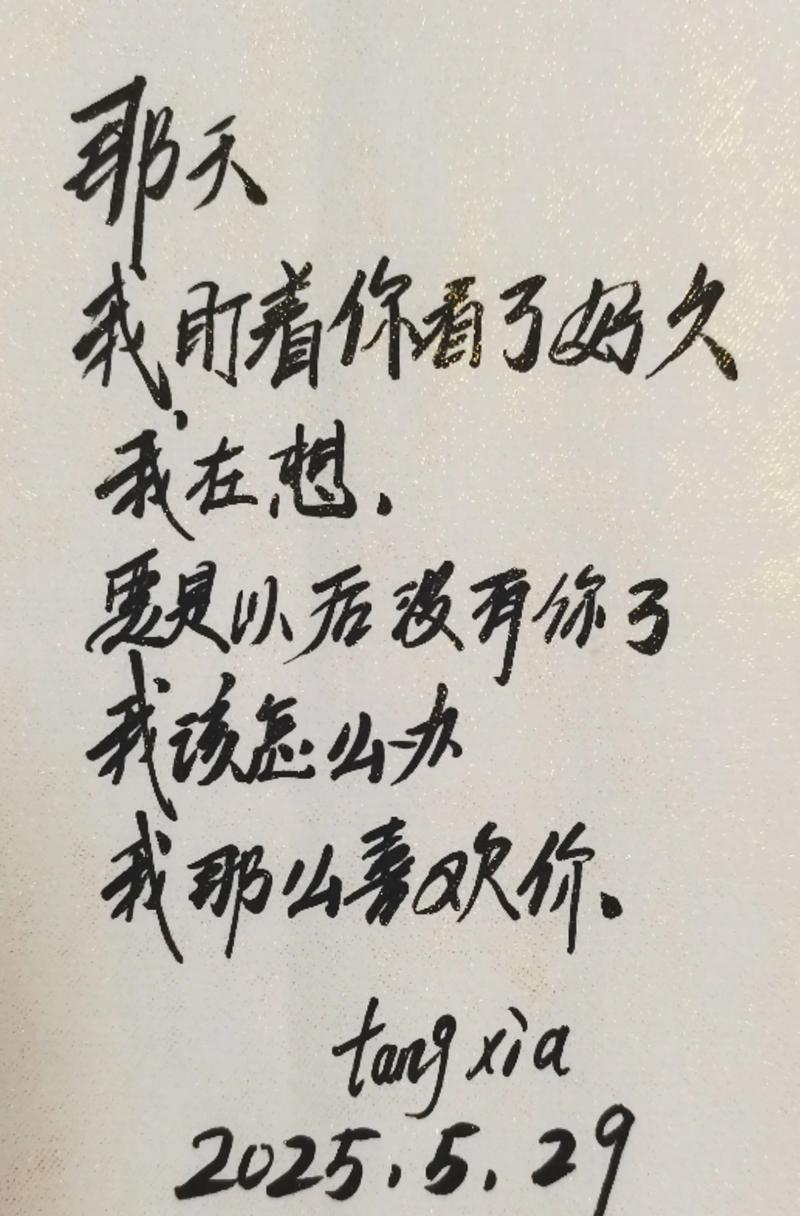 那天
我盯着你看了好久
我在想.
要是以后没有你了
我该怎么办
我那么喜欢你.
tang xia
2025.5.29